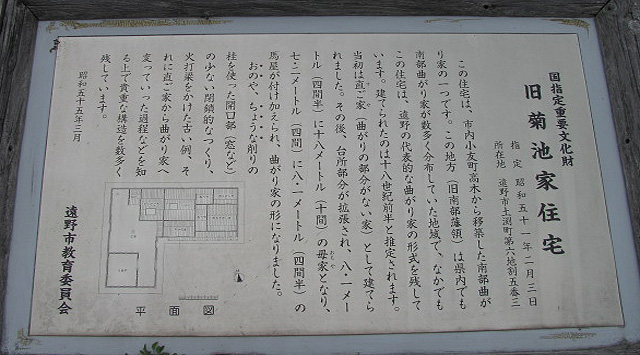 国指定重要文化財
旧菊池家住宅
指定 昭和五十一年二月三日
所在地 遠野市土淵町第六地割五番三
この住宅は、市内小友町高木から移築した南部曲が
り家の一つです。この地方（旧南部藩領）は県内でも
南部曲がり家が数多く分布していた地域で、なかでも
この住宅は、遠野の代表的な曲がり家の形式を残して
います。建てられたのは十八世紀前半と推定されます。
当初は直ご家（曲がりの部分がない家）として建てら
れました。その後、台所部分が拡張され、八・一メー
トル（四間半）に十八メートル（十間）の母家となり、
七・二メートル（四間）に八・一メートル（四間半）の
馬屋が付け加えられ、曲がり家の形になりました。
おのや、ちょうな削りの
柱を使った開口部（窓など）
の少ない閉鎖的なつくり、
火打梁をかけた古い例、そ
れに直ご家から曲がり家へ
変っていった過程などを知
る上で貴重な構造を数多く
残しています。
昭和五十五年三月
遠野市教育委員会
平面図